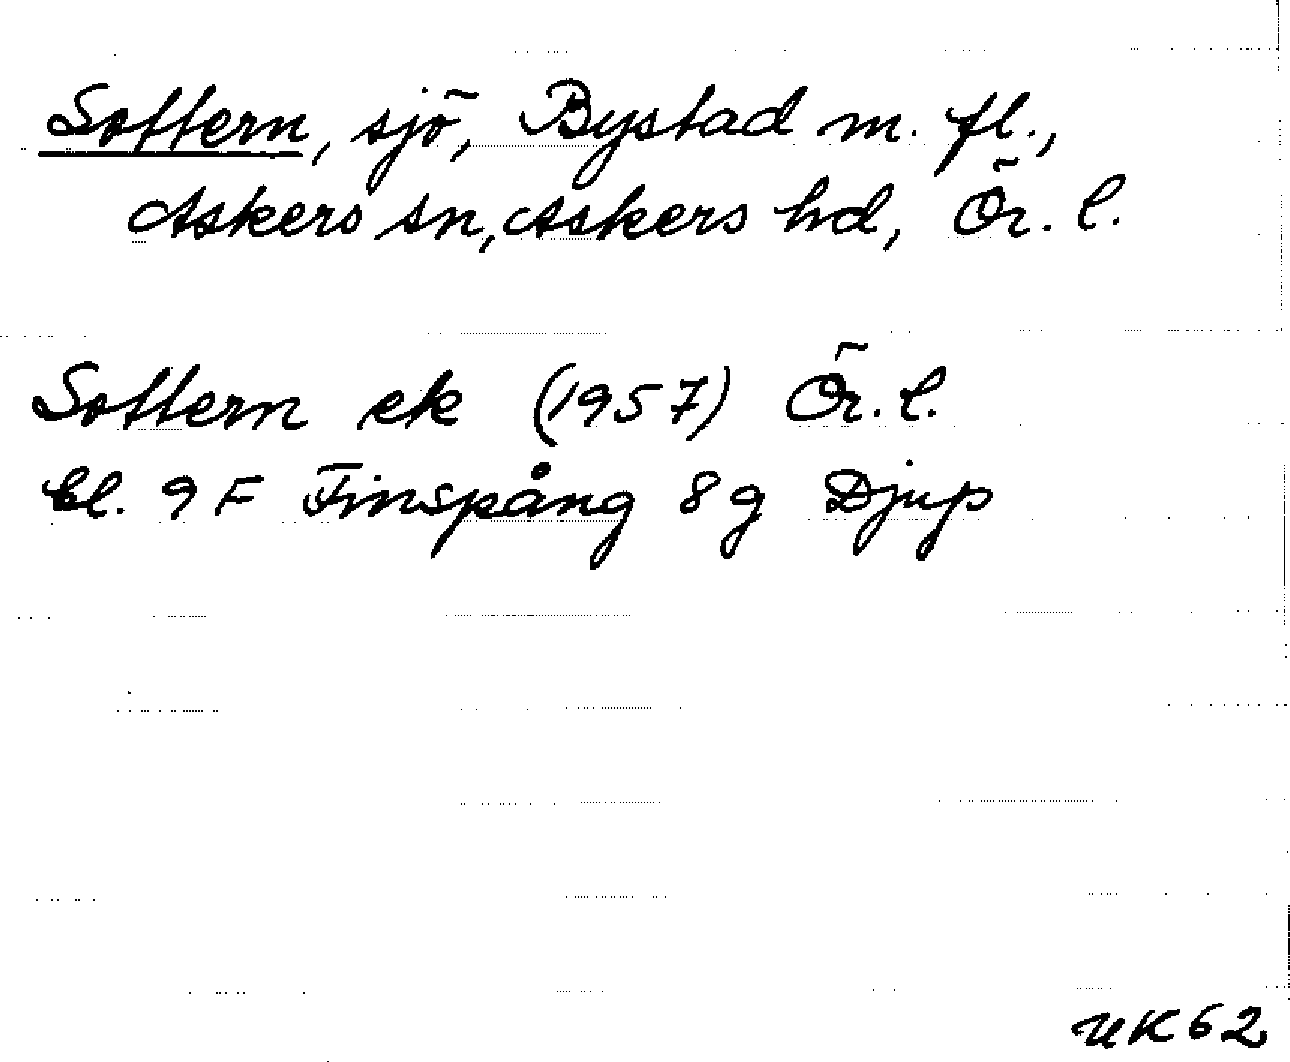 Sottern, sjö, Bystad m. fl.,
Askers sn, Askers hd, Ör. l.
Sottern ek (1957) Ör. l.
bl. 9 F Finspång 8 g Djup
UK 62